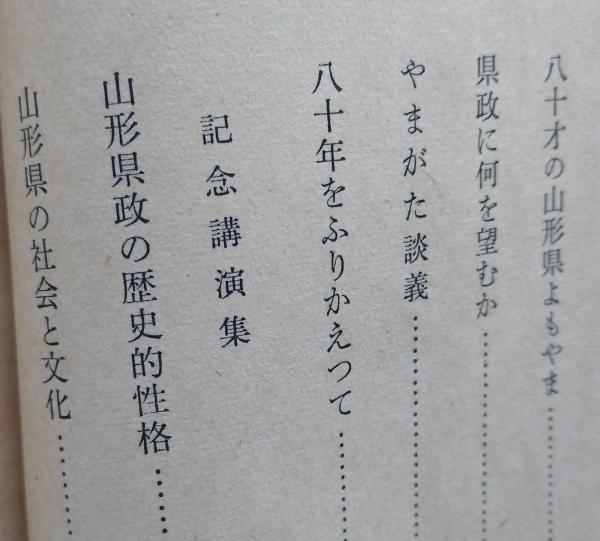 八十才の山形県よもやま…………
県政に何を望むか…………
やまがた談義…………
八十年をふりかえつて…………
記念講演集
山形県政の歴史的性格…………
山形県の社会と文化…………